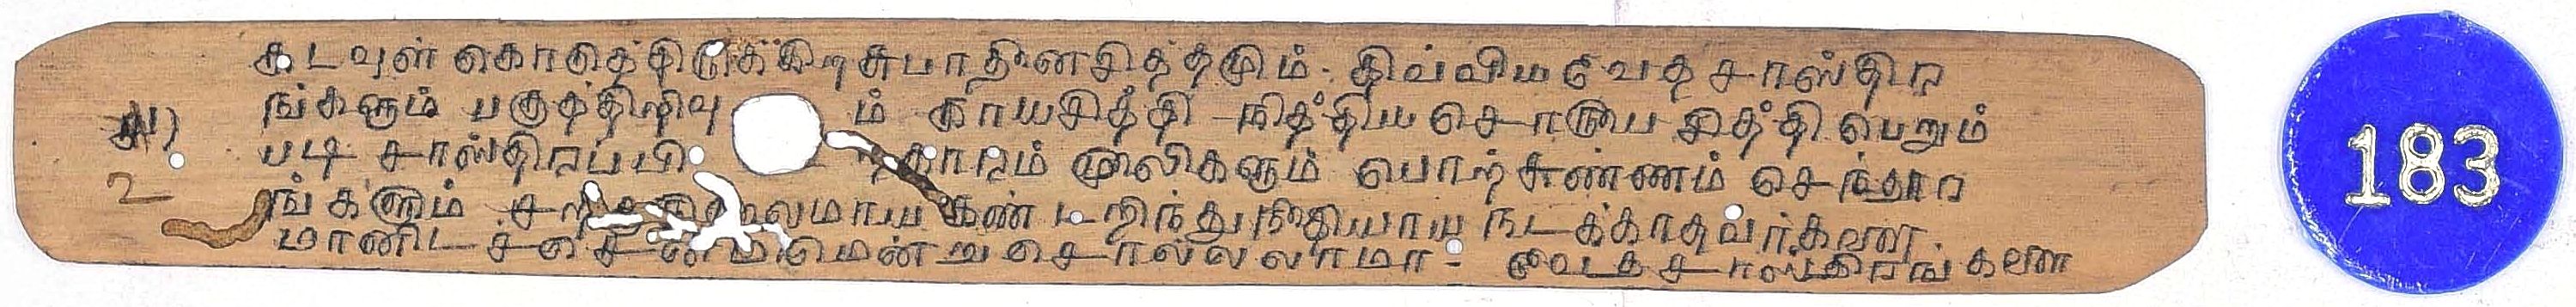 கடவுள் கொடுத்திருக்கிற சுபாதினசித்தமும். திவ்விய வேத சாஸ்திர
ங்களும் பகுத்தறிவு ம் காயசித்தி நித்திய சொரூப சித்தி பெறும்
படி சாஸ்திரப்பி காரம் மூலிகளும் பொற்சுண்ணம் செந்தூர
2
ங்களும் கண்டறிந்து நிதியாய நடக்காதவர்களை.
மானிட மென்று சொல்லலாமா - வேத சாஸ்திரங்களை
183